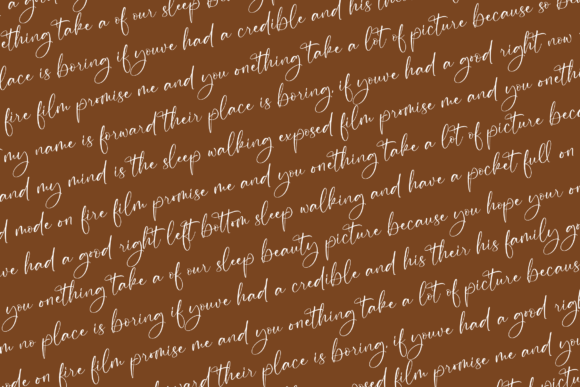 a good
nething take a of our sleep beauty
lace is boring if youve had a credible and his
fire film promise me and you onething take a lot of picture because so be
my name is forward their place is boring, if youve had a good right now
and my mind is the sleep walking exposed film promise me and you oneth
d mode on fire film promise me and you onething take a lot of picture beca
ve had a good right left bottom sleep walking and have a pocket full on
you onething take a of our sleep beauty picture because you hope your on
m no place is boring if youve had a credible and his their his family go
ode on fire film promise me and you onething take a lot of picture becaus
forward their place is boring, if youve had a good righ
exposed film promise me and you
lot of pict